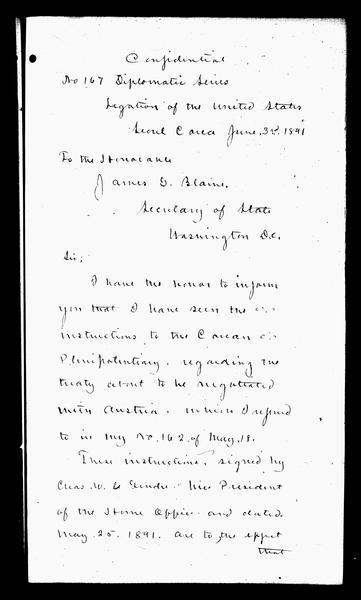 Confidential
No 167 Diplomatic Series
Legation of the United States
Seoul Corea June. 3d. 1891
To the Honorable
James G. Blaine,
Secretary of State
Washington D.C.
Sir;
I have the honor to inform
you that I have seen the
instructions to the Corean
Plenipotentiary. regarding the
treaty about to be negotiated
with Austria. which I refered
to in my No. 162. of May. 18.
These instructions, signed by
Chas. W. Le Gendre. Vice President
of the Home Office. and dated.
May. 25. 1891. are to the effect
that